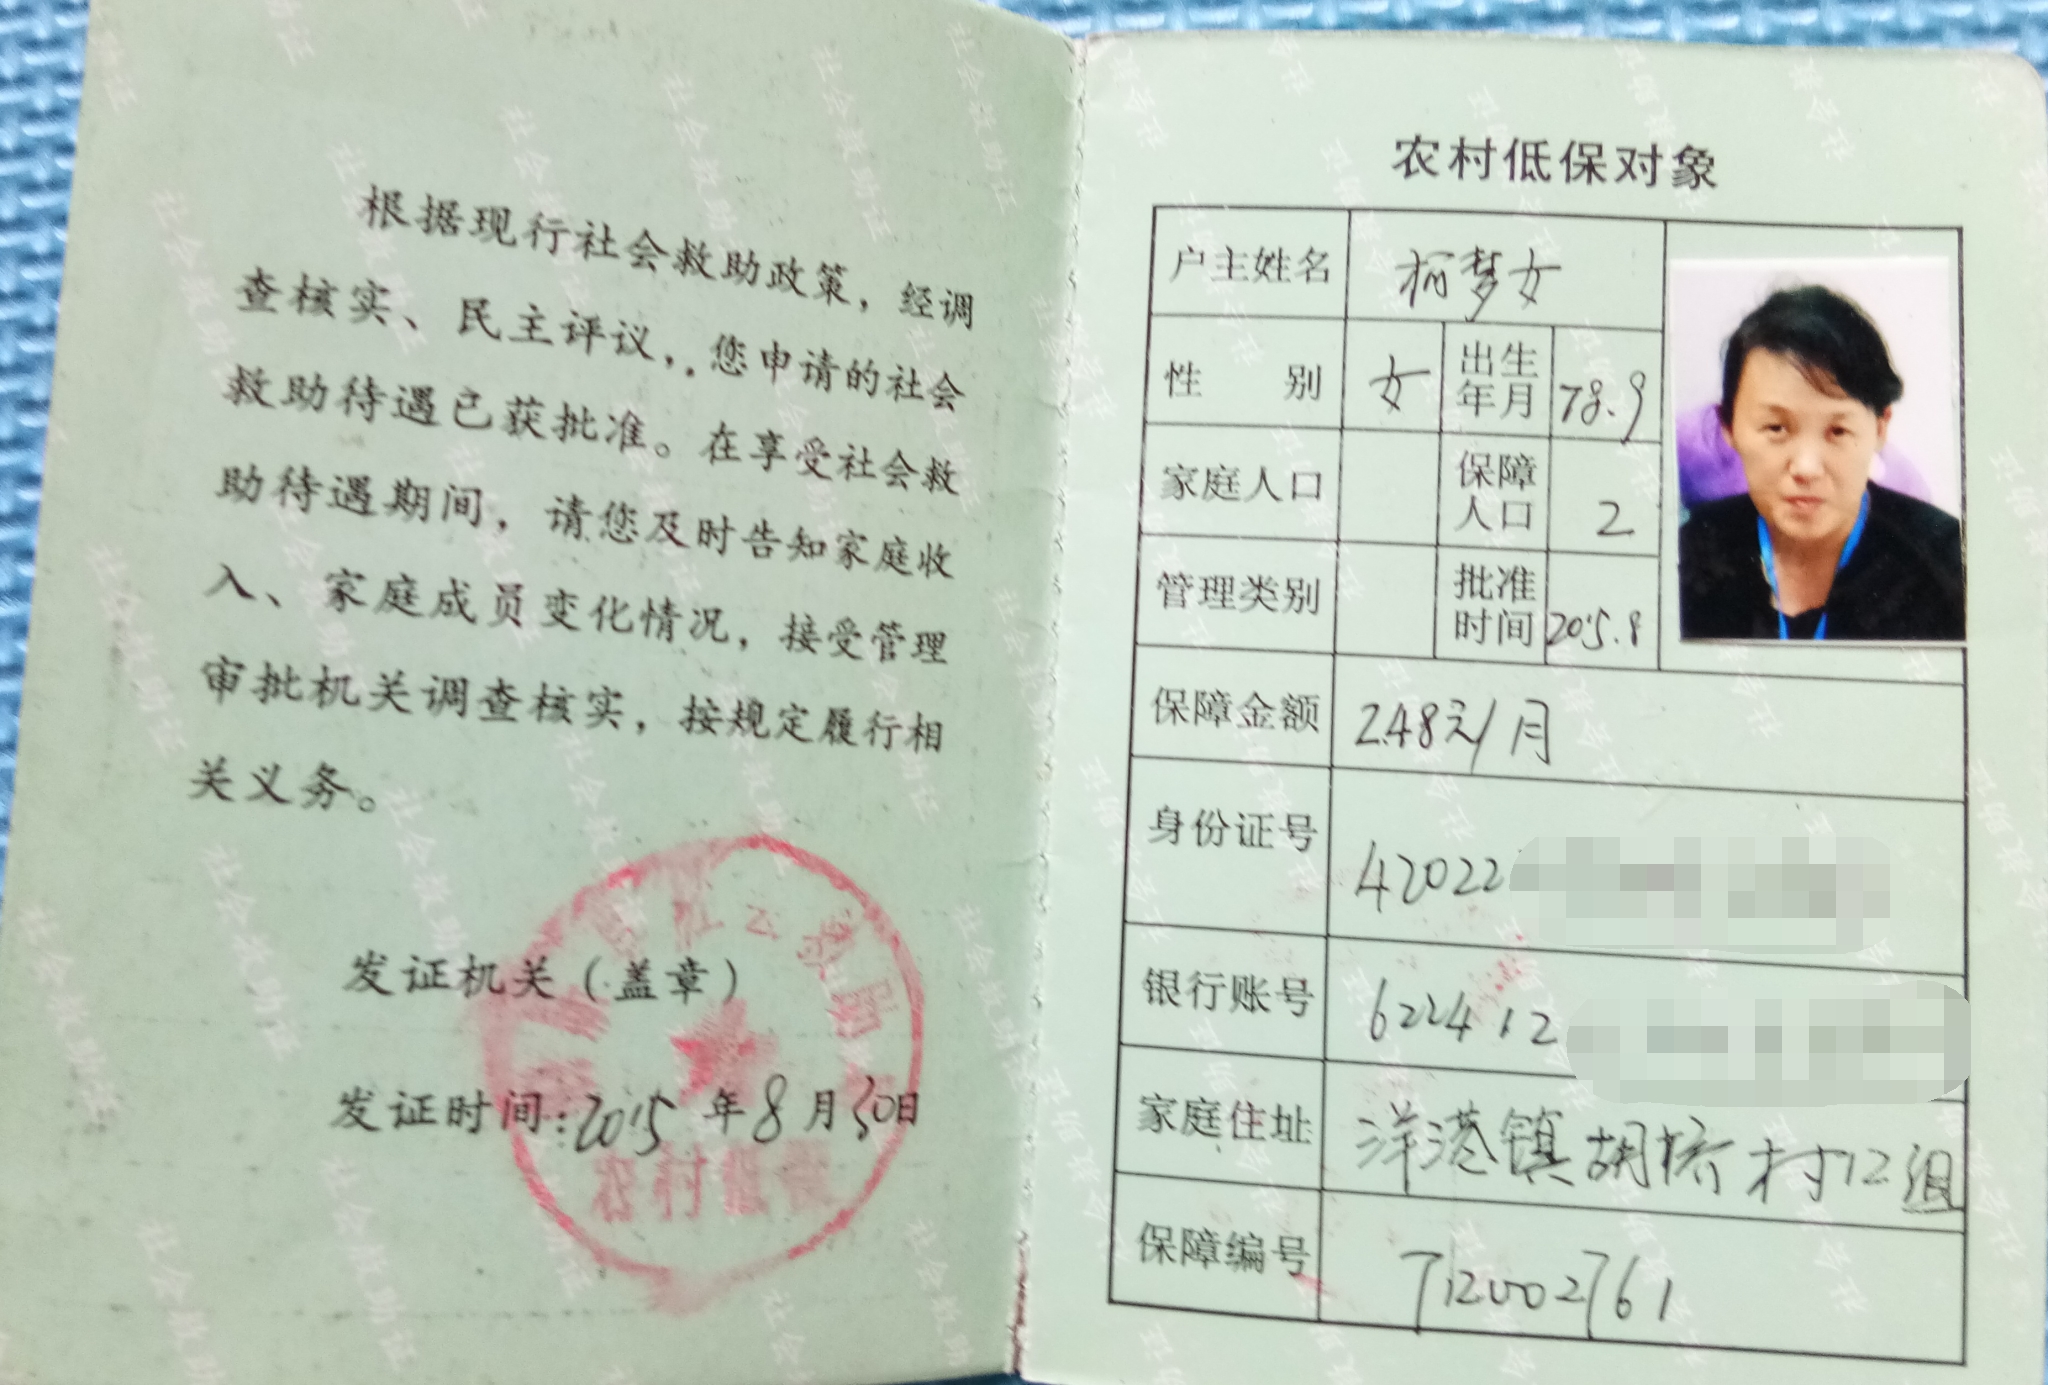 根据现行社会救助政策，经调
查核实、民主评议，您申请的社会
救助待遇已获批准。在享受社会救
助待遇期间，请您及时告知家庭收
入、家庭成员变化情况，接受管理
审批机关调查核实，按规定履行相
关义务。
发证机关（盖章）
发证时间:2015年8月30日
农村低保
农村低保对象
户主姓名 柯梦女
性别 女 出生年月 78.9
家庭人口 保障人口 2
管理类别 批准时间 2015.8
保障金额 248元/月
身份证号 42022
银行账号 622412
家庭住址 洋港镇胡桥村12组
保障编号 712002761